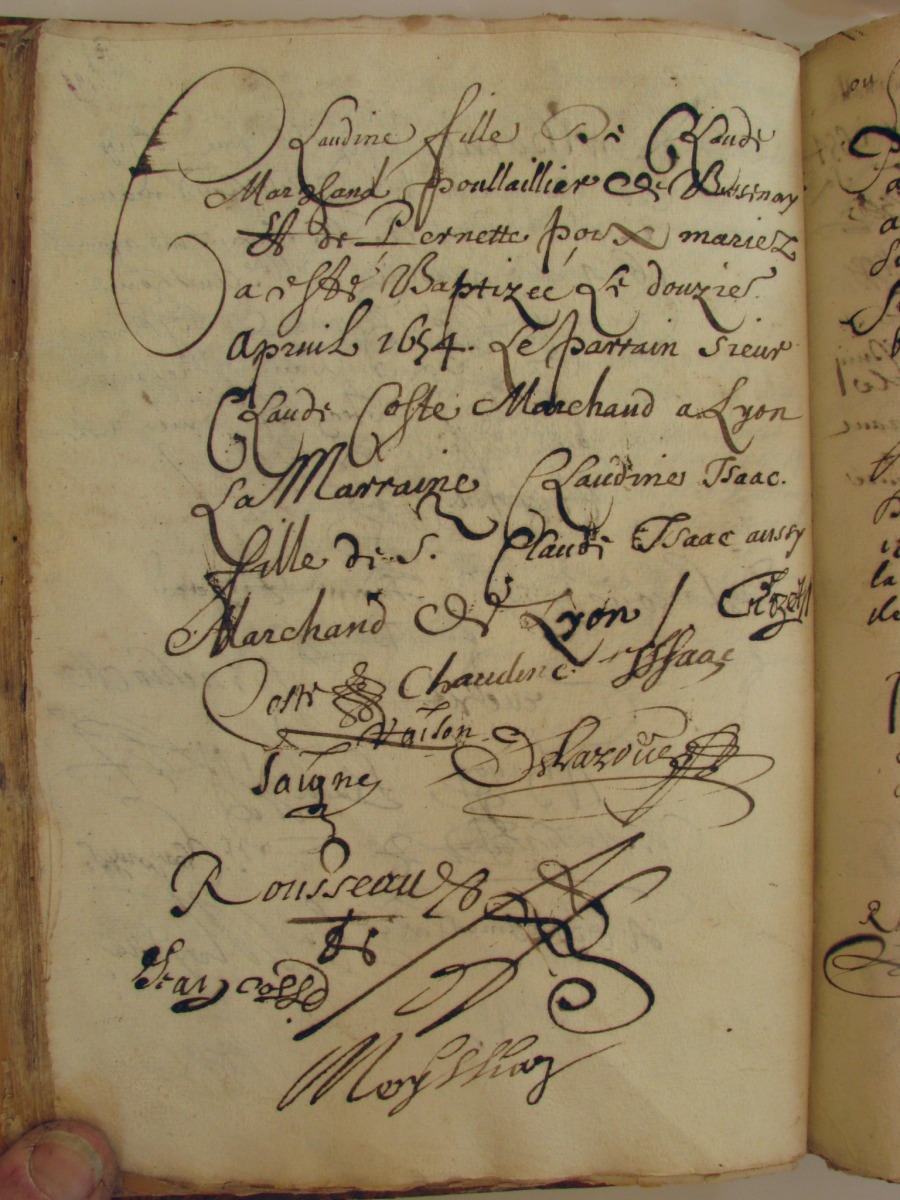 Claudine fille De Claude
Marchand poullaillier De Bessenay
Et de Pernette poix mariez
a esté Baptizeé Le douzies.
apvril 1654. Le parrain sieur
Claude Coste Marchaud a Lyon
La Marraine Claudine Isaac.
fille de S. Claude Isaac aussy
Marchand De Lyon /
Coste Chaudine Issaac
Vaison
Saigne
Rousseau
Jean cosse